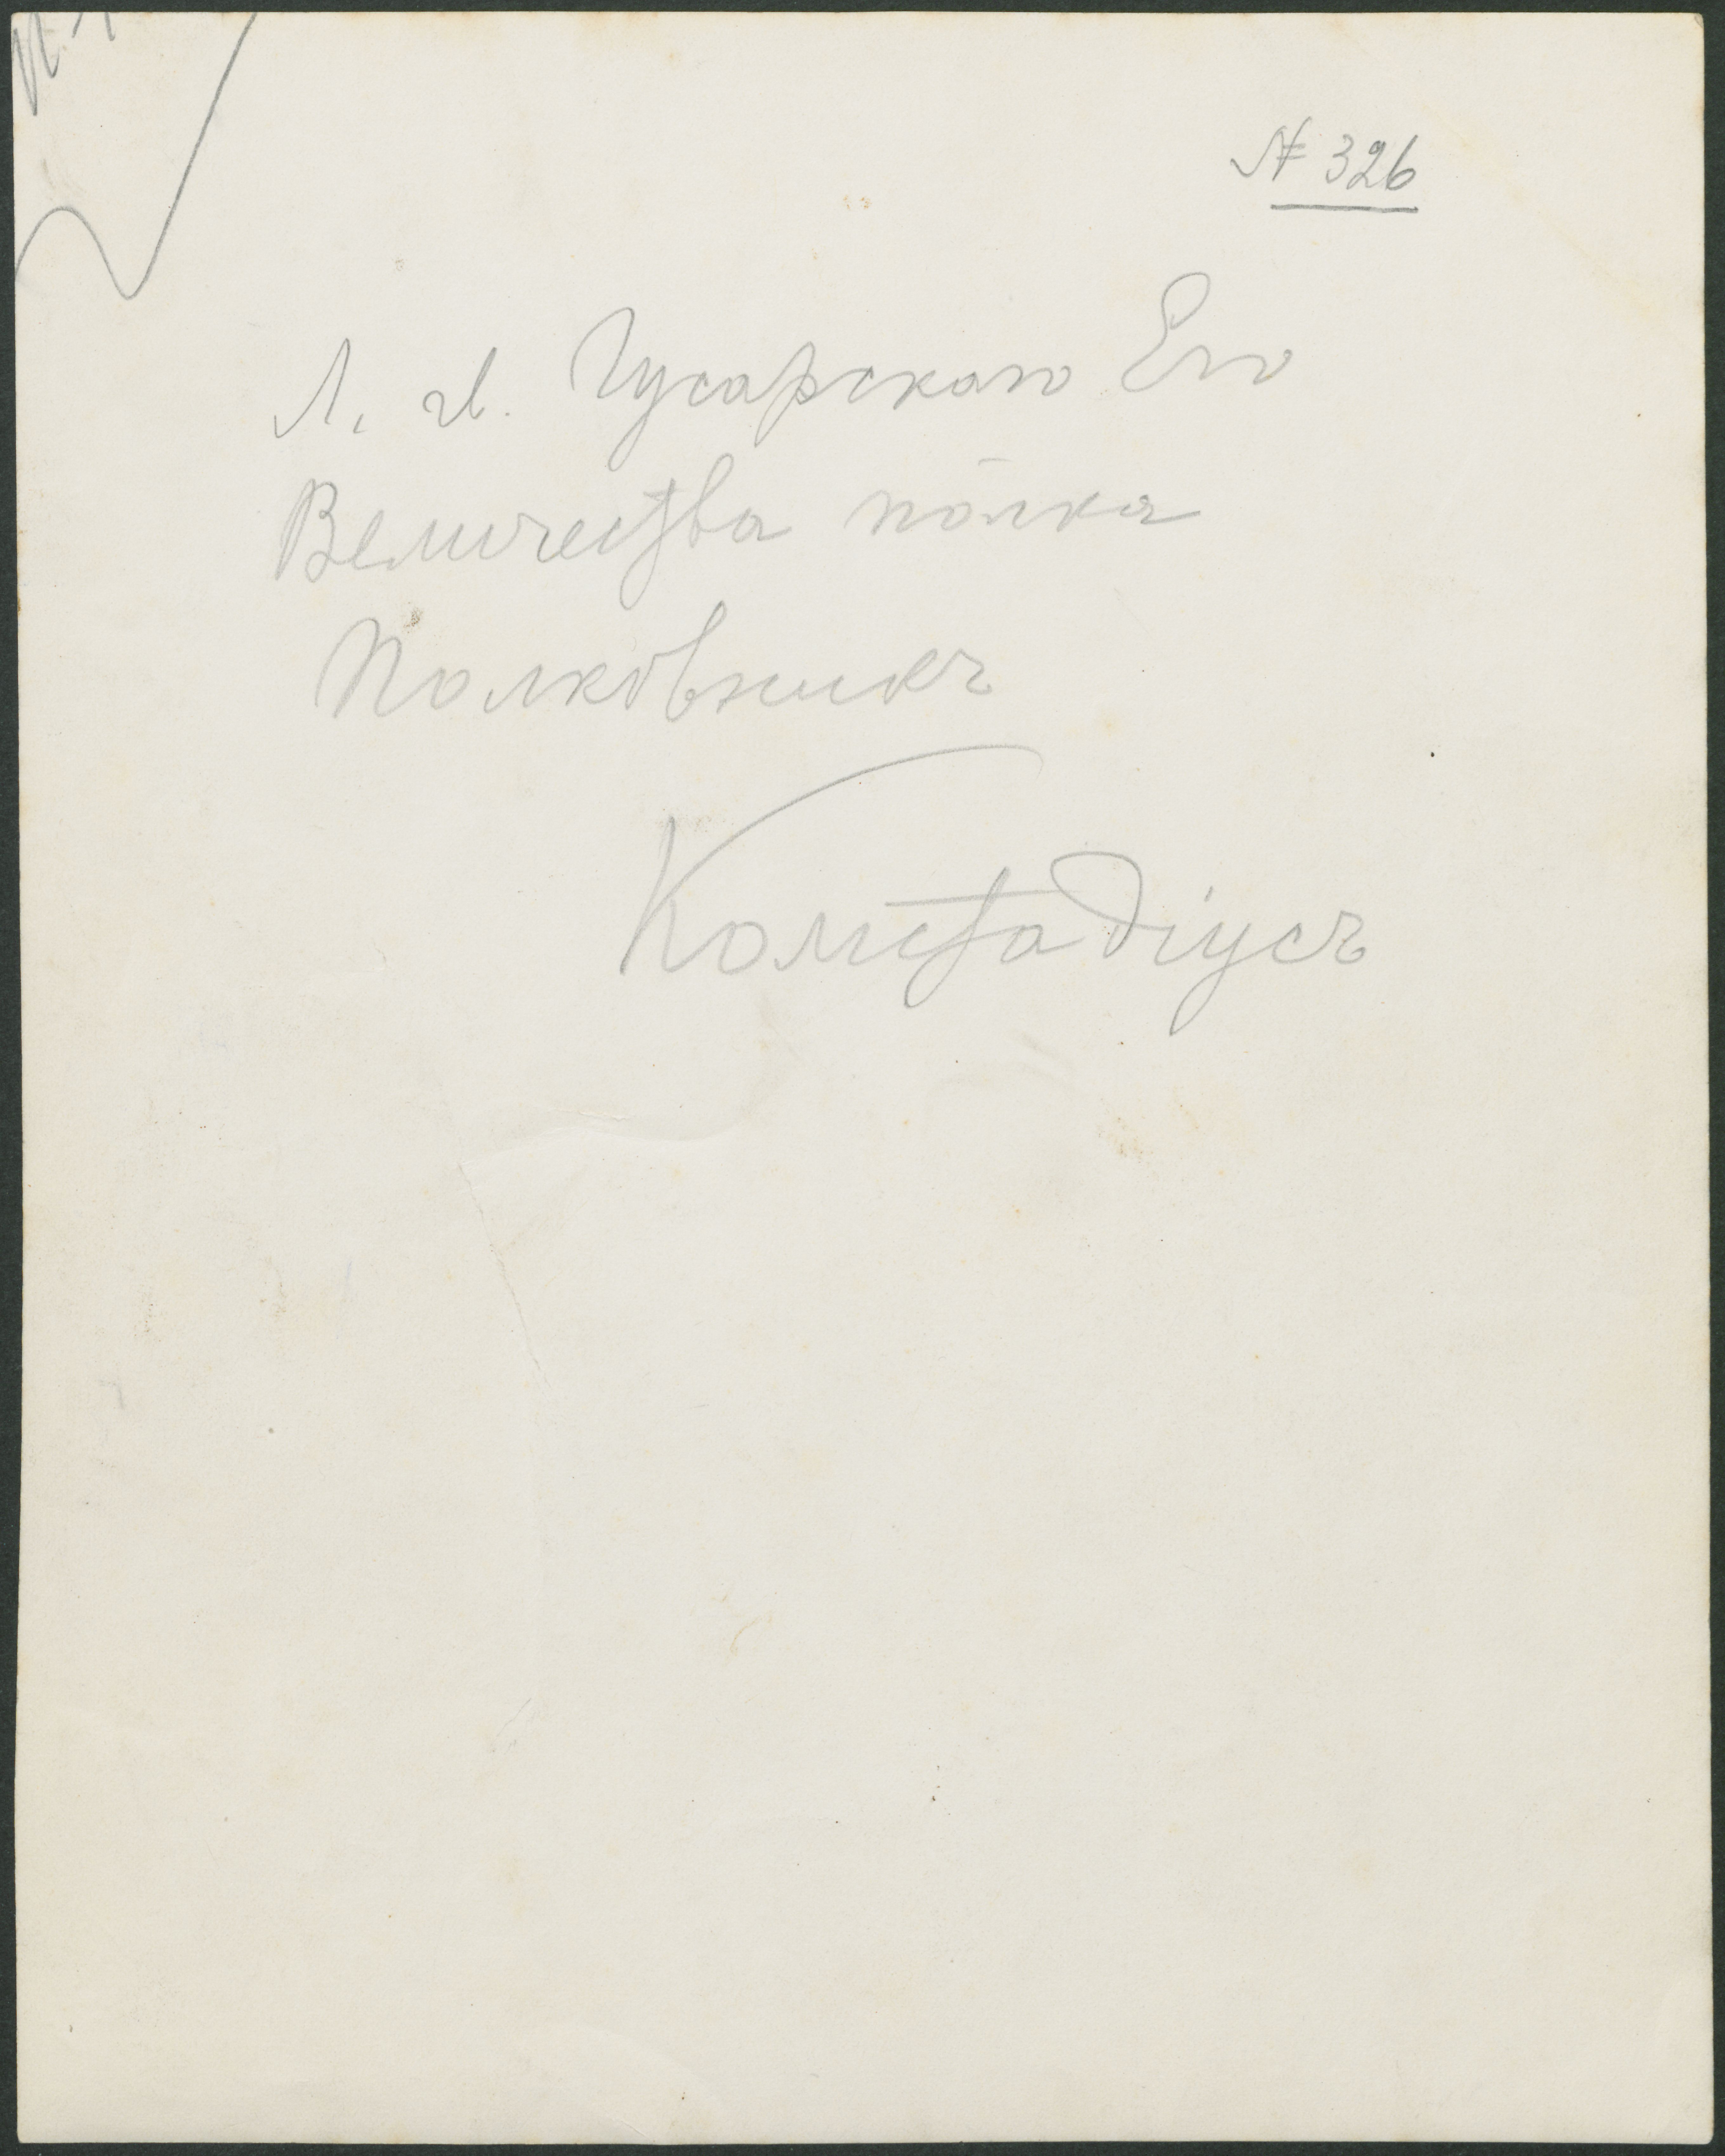 № 326
Л. гв. Гусарскаго Его
Величества полка
Полковникъ
Комстадіусъ